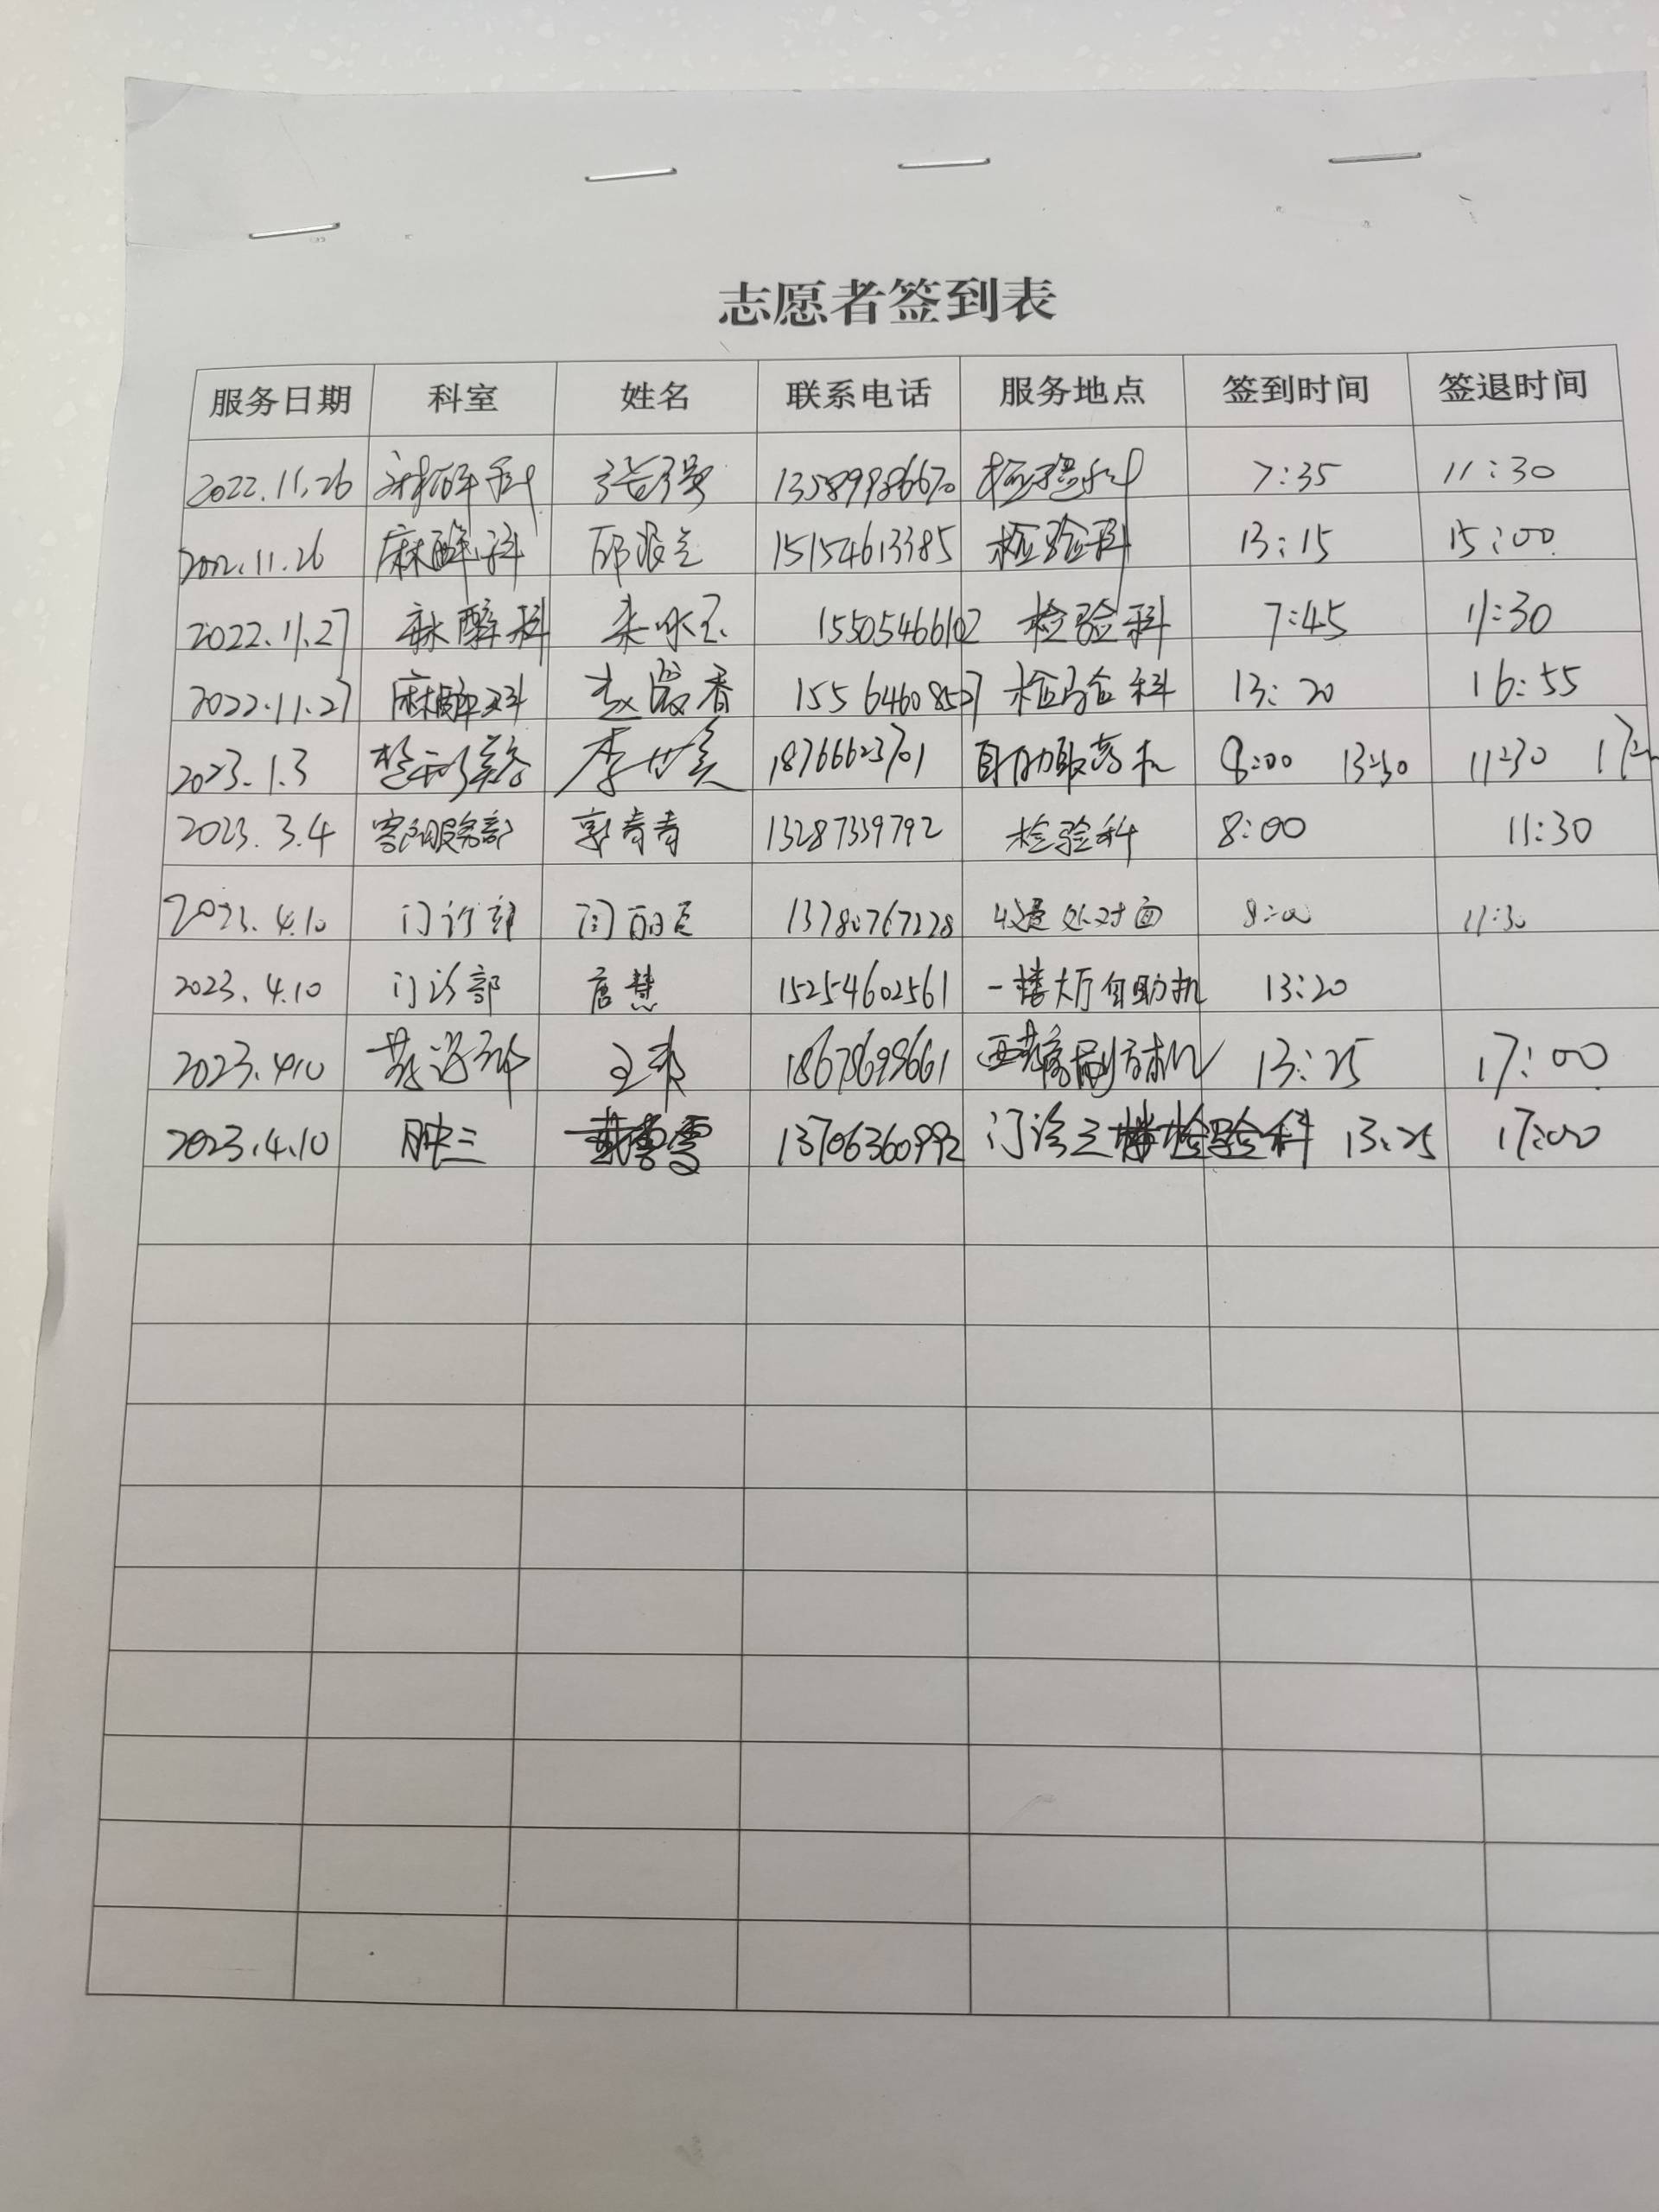 志愿者签到表
服务日期 科室 姓名 联系电话 服务地点 签到时间 签退时间
2022.11.26 麻醉科 张强 13589986670 检验科 7:35 11:30
2022.11.26 麻醉科 15154613385 检验科 13:15 15:00
2022.11.27 麻醉科 15505466102 检验科 7:45 11:30
2022.11.27 麻醉科 赵俊香 15564608527 检验科 13:20 16:55
2023.1.3 18766623701 自助取药机 8:00 13:30 11:30
2023.3.4 客户服务部 郭青青 13287339792 检验科 8:00 11:30
2023.4.10 门诊部 闫丽 13780767228 收费处对面 8:00 11:30
2023.4.10 门诊部 唐慧 15254602561 一楼大厅自助机 13:20
2023.4.10 18678699661 13:25 17:00
2023.4.10 肿三 13706360992 门诊三楼检验科 13:25 17:00